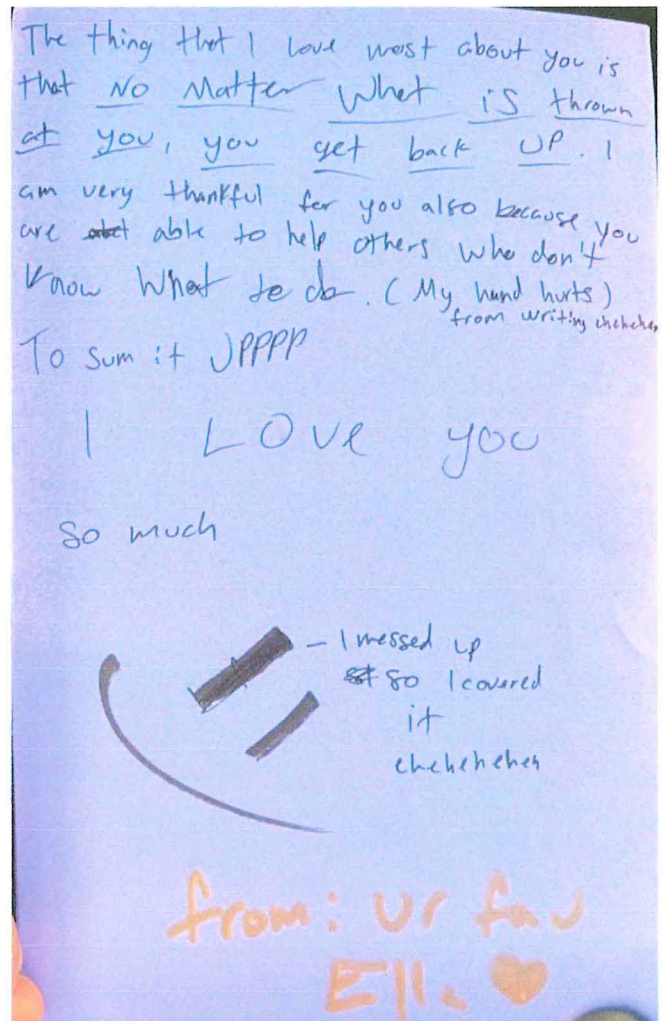 The thing that I love most about you is
that No Matter What is thrown
at you, you get back UP. I
am very thankful for you also because you
are able to help others who don't
know What to do. (My hand hurts)
from writing eheheheh
To sum it UPPPP
I LOVe you
so much
– I messed up
so I covered
it
ehehehehen
from: ur fav